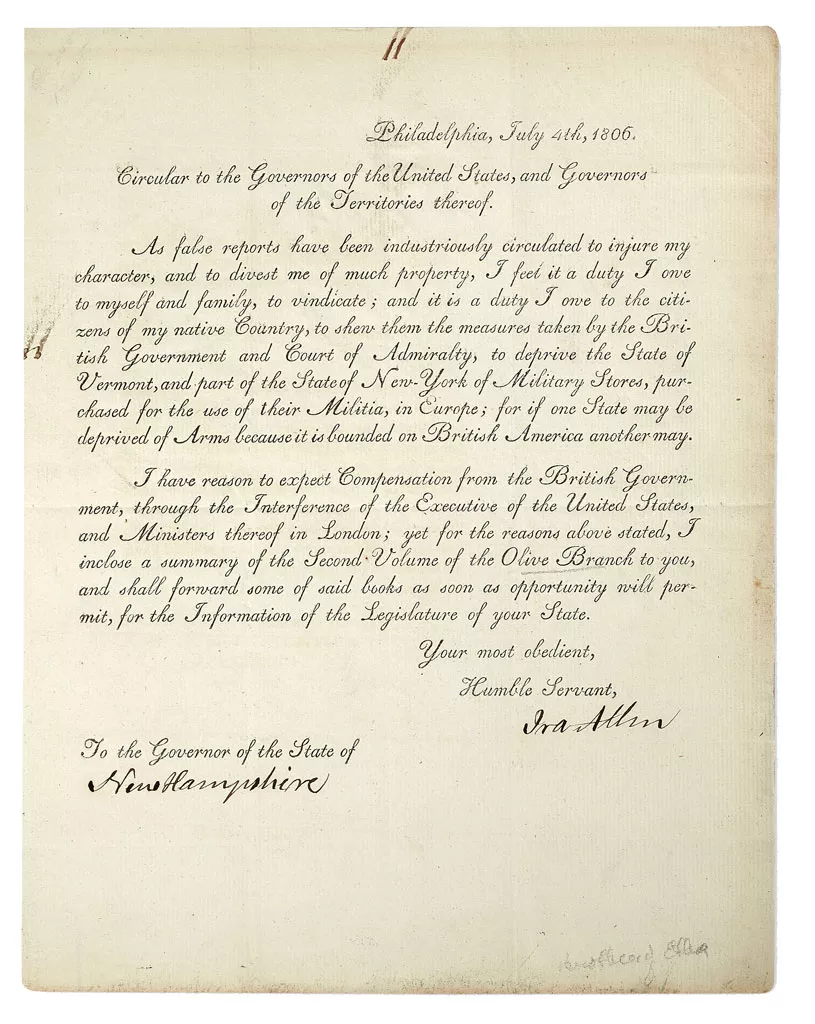 Philadelphia, July 4th, 1806.
Circular to the Governors of the United States, and Governors
of the Territories thereof.
As false reports have been industriously circulated to injure my
character, and to divest me of much property, I feel it a duty I owe
to myself and family, to vindicate; and it is a duty I owe to the citi-
zens of my native Country, to shew them the measures taken by the Bri-
tish Government and Court of Admiralty, to deprive the State of
Vermont, and part of the State of New-York of Military Stores, pur-
chased for the use of their Militia, in Europe; for if one State may be
deprived of Arms because it is bounded on British America another may.
I have reason to expect Compensation from the British Govern-
ment, through the Interference of the Executive of the United States,
and Ministers thereof in London; yet for the reasons above stated, I
inclose a summary of the Second Volume of the Olive Branch to you,
and shall forward some of said books as soon as opportunity will per-
mit, for the Information of the Legislature of your State.
Your most obedient,
Humble Servant,
Ira Allen
To the Governor of the State of
New Hampshire